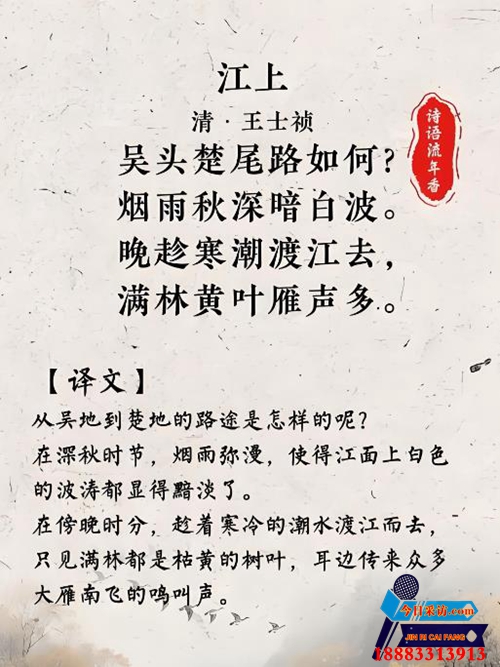 江上
清·王士祯
诗语流年香
吴头楚尾路如何？
烟雨秋深暗白波。
晚趁寒潮渡江去，
满林黄叶雁声多。
【译文】
从吴地到楚地的路途是怎样的呢？
在深秋时节，烟雨弥漫，使得江面上白色
的波涛都显得黯淡了。
在傍晚时分，趁着寒冷的潮水渡江而去，
只见满林都是枯黄的树叶，耳边传来众多
大雁南飞的鸣叫声。
今日采访.com
JIN RI CAI FANG
18883313913